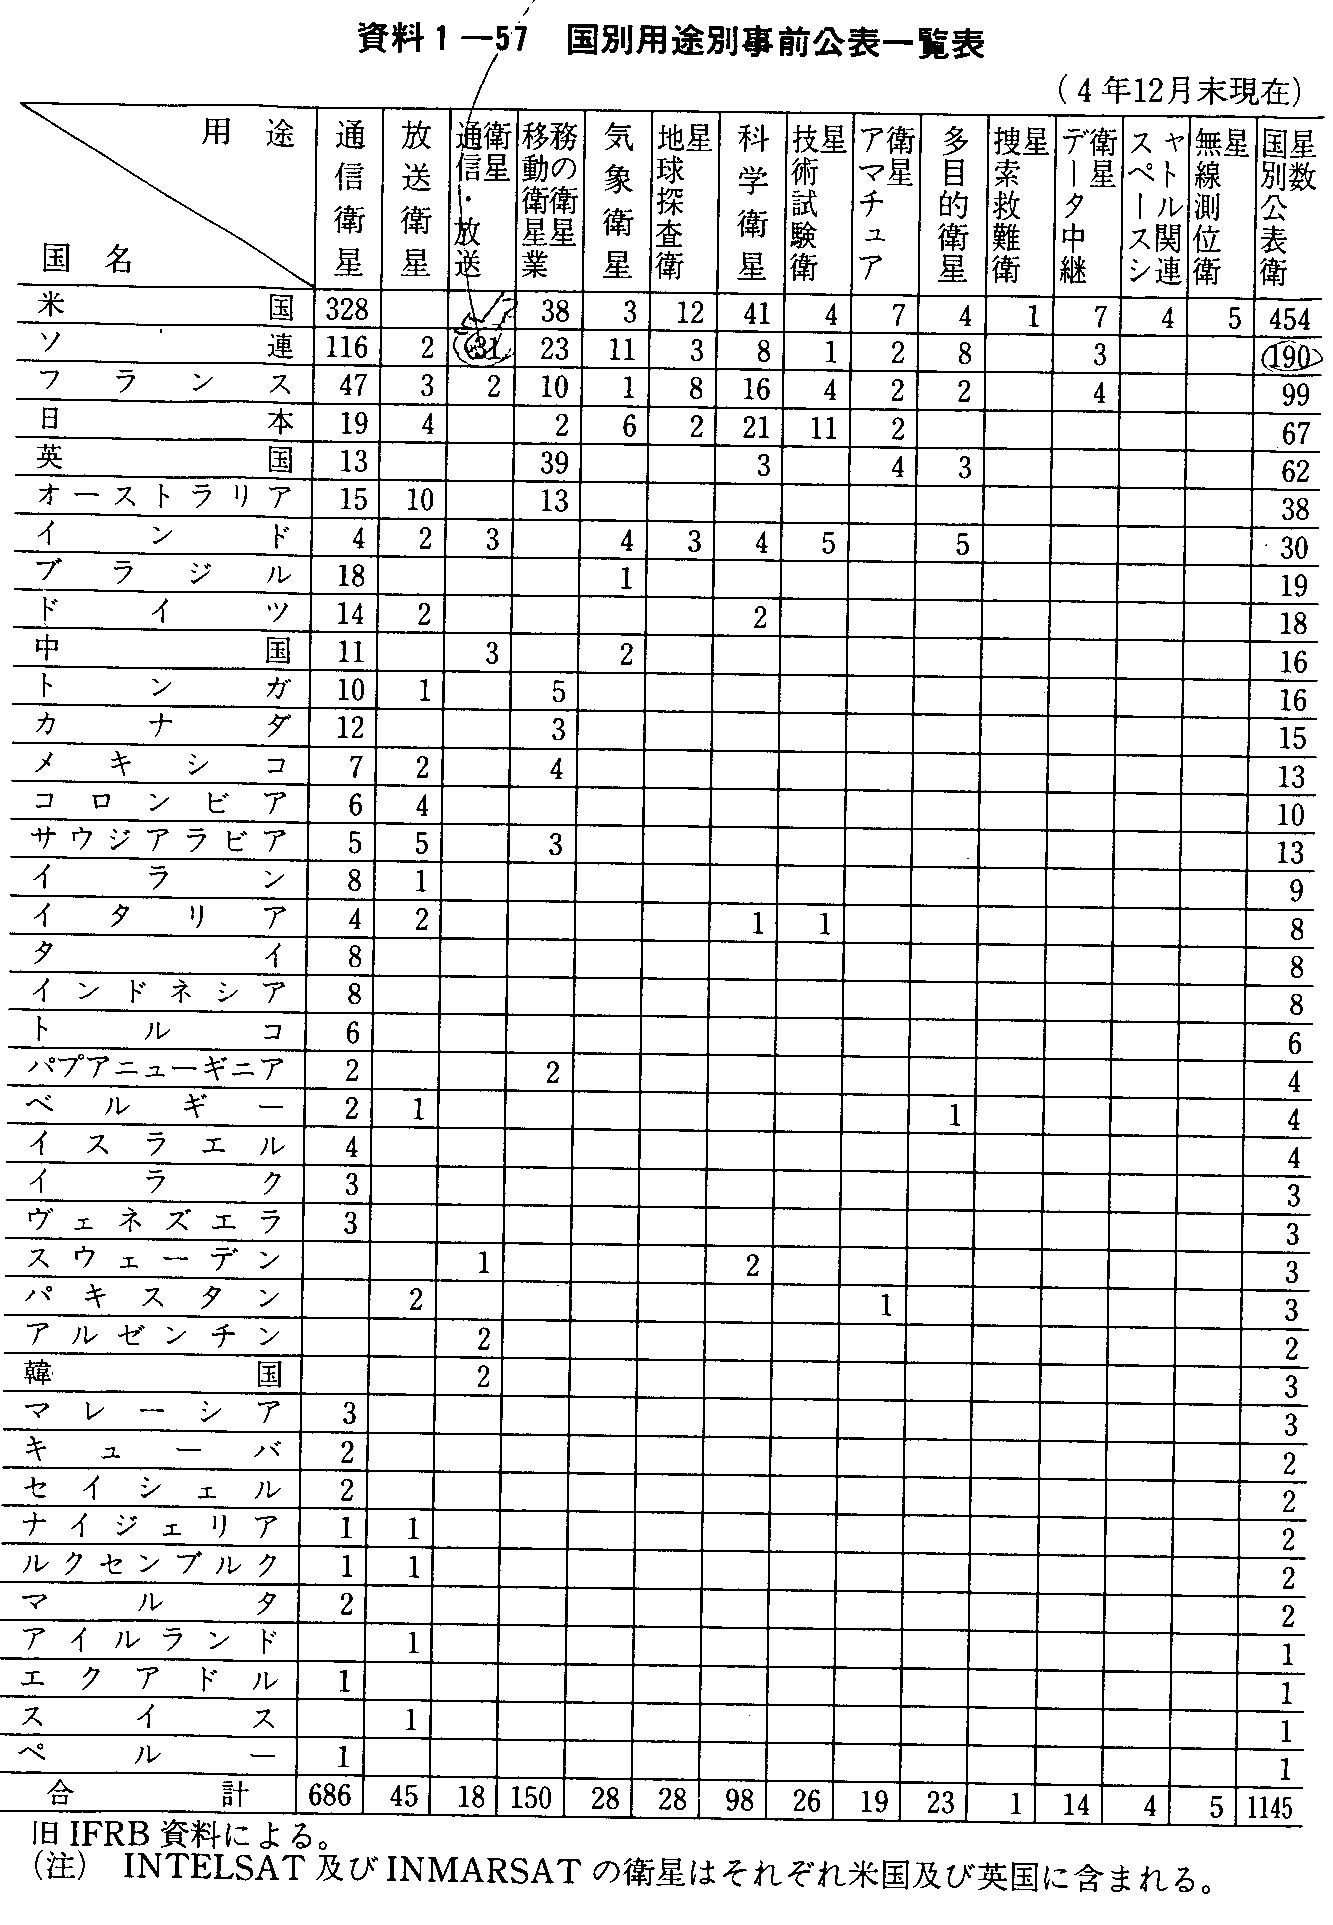 資料1－57　国別用途別事前公表一覧表
（4年12月末現在）
用途 国名 通信衛星 放送衛星 通信・放送衛星 移動衛星業務の衛星 気象衛星 地球探査衛星 科学衛星 技術試験衛星 アマチュア衛星 多目的衛星 捜索救難衛星 データ中継衛星 スペースシャトル関連 無線測位衛星 国別公表衛星数
米国 328 38 3 12 41 4 7 4 1 7 4 5 454
ソ連 116 2 31 23 11 3 8 1 2 8 3 190
フランス 47 3 2 10 1 8 16 4 2 2 4 99
日本 19 4 2 6 2 21 11 2 67
英国 13 39 3 4 3 62
オーストラリア 15 10 13 38
インド 4 2 3 4 3 4 5 5 30
ブラジル 18 1 19
ドイツ 14 2 2 18
中国 11 3 2 16
トンガ 10 1 5 16
カナダ 12 3 15
メキシコ 7 2 4 13
コロンビア 6 4 10
サウジアラビア 5 5 3 13
イラン 8 1 9
イタリア 4 2 1 1 8
タイ 8 8
インドネシア 8 8
トルコ 6 6
パプアニューギニア 2 2 4
ベルギー 2 1 1 4
イスラエル 4 4
イラク 3 3
ヴェネズエラ 3 3
スウェーデン 1 2 3
パキスタン 2 1 3
アルゼンチン 2 2
韓国 2 3
マレーシア 3 3
キューバ 2 2
セイシェル 2 2
ナイジェリア 1 1 2
ルクセンブルク 1 1 2
マルタ 2 2
アイルランド 1 1
エクアドル 1 1
スイス 1 1
ペルー 1 1
合計 686 45 18 150 28 28 98 26 19 23 1 14 4 5 1145
旧IFRB資料による。
（注）　INTELSAT及びINMARSATの衛星はそれぞれ米国及び英国に含まれる。